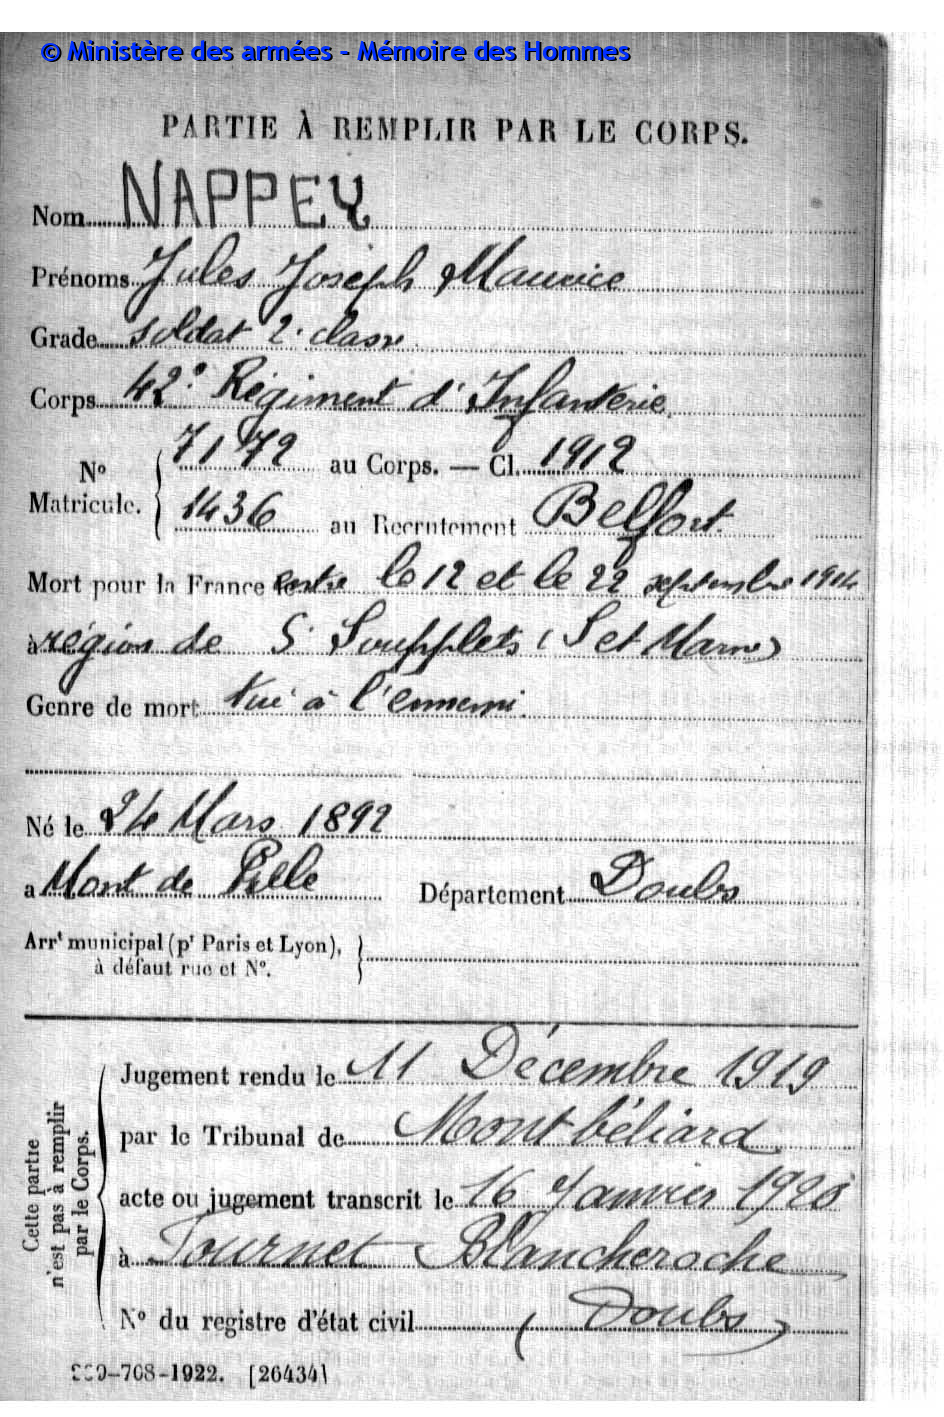 © Ministère des armées - Mémoire des Hommes
PARTIE À REMPLIR PAR LE CORPS.
Nom NAPPEY
Prénoms Jules Joseph Maurice
Grade soldat 2e classe
Corps 42e Régiment d'Infanterie
N° Matricule. 7172 au Corps. — Cl. 1912
1436 au Recrutement Belfort
Mort pour la France le entre le 12 et le 22 septembre 1914
à région de St Soupplets (S et Marne)
Genre de mort Tué à l'ennemi
Né le 24 Mars 1892
à Mont de Département Doubs
Arrt municipal (pr Paris et Lyon),
à défaut rue et N°.
Cette partie n'est pas à remplir par le Corps.
Jugement rendu le 11 Décembre 1919
par le Tribunal de Montbéliard
acte ou jugement transcrit le 16 Janvier 1920
à Fournet Blancheroche
N° du registre d'état civil (Doubs)
-708-1922. [26434]